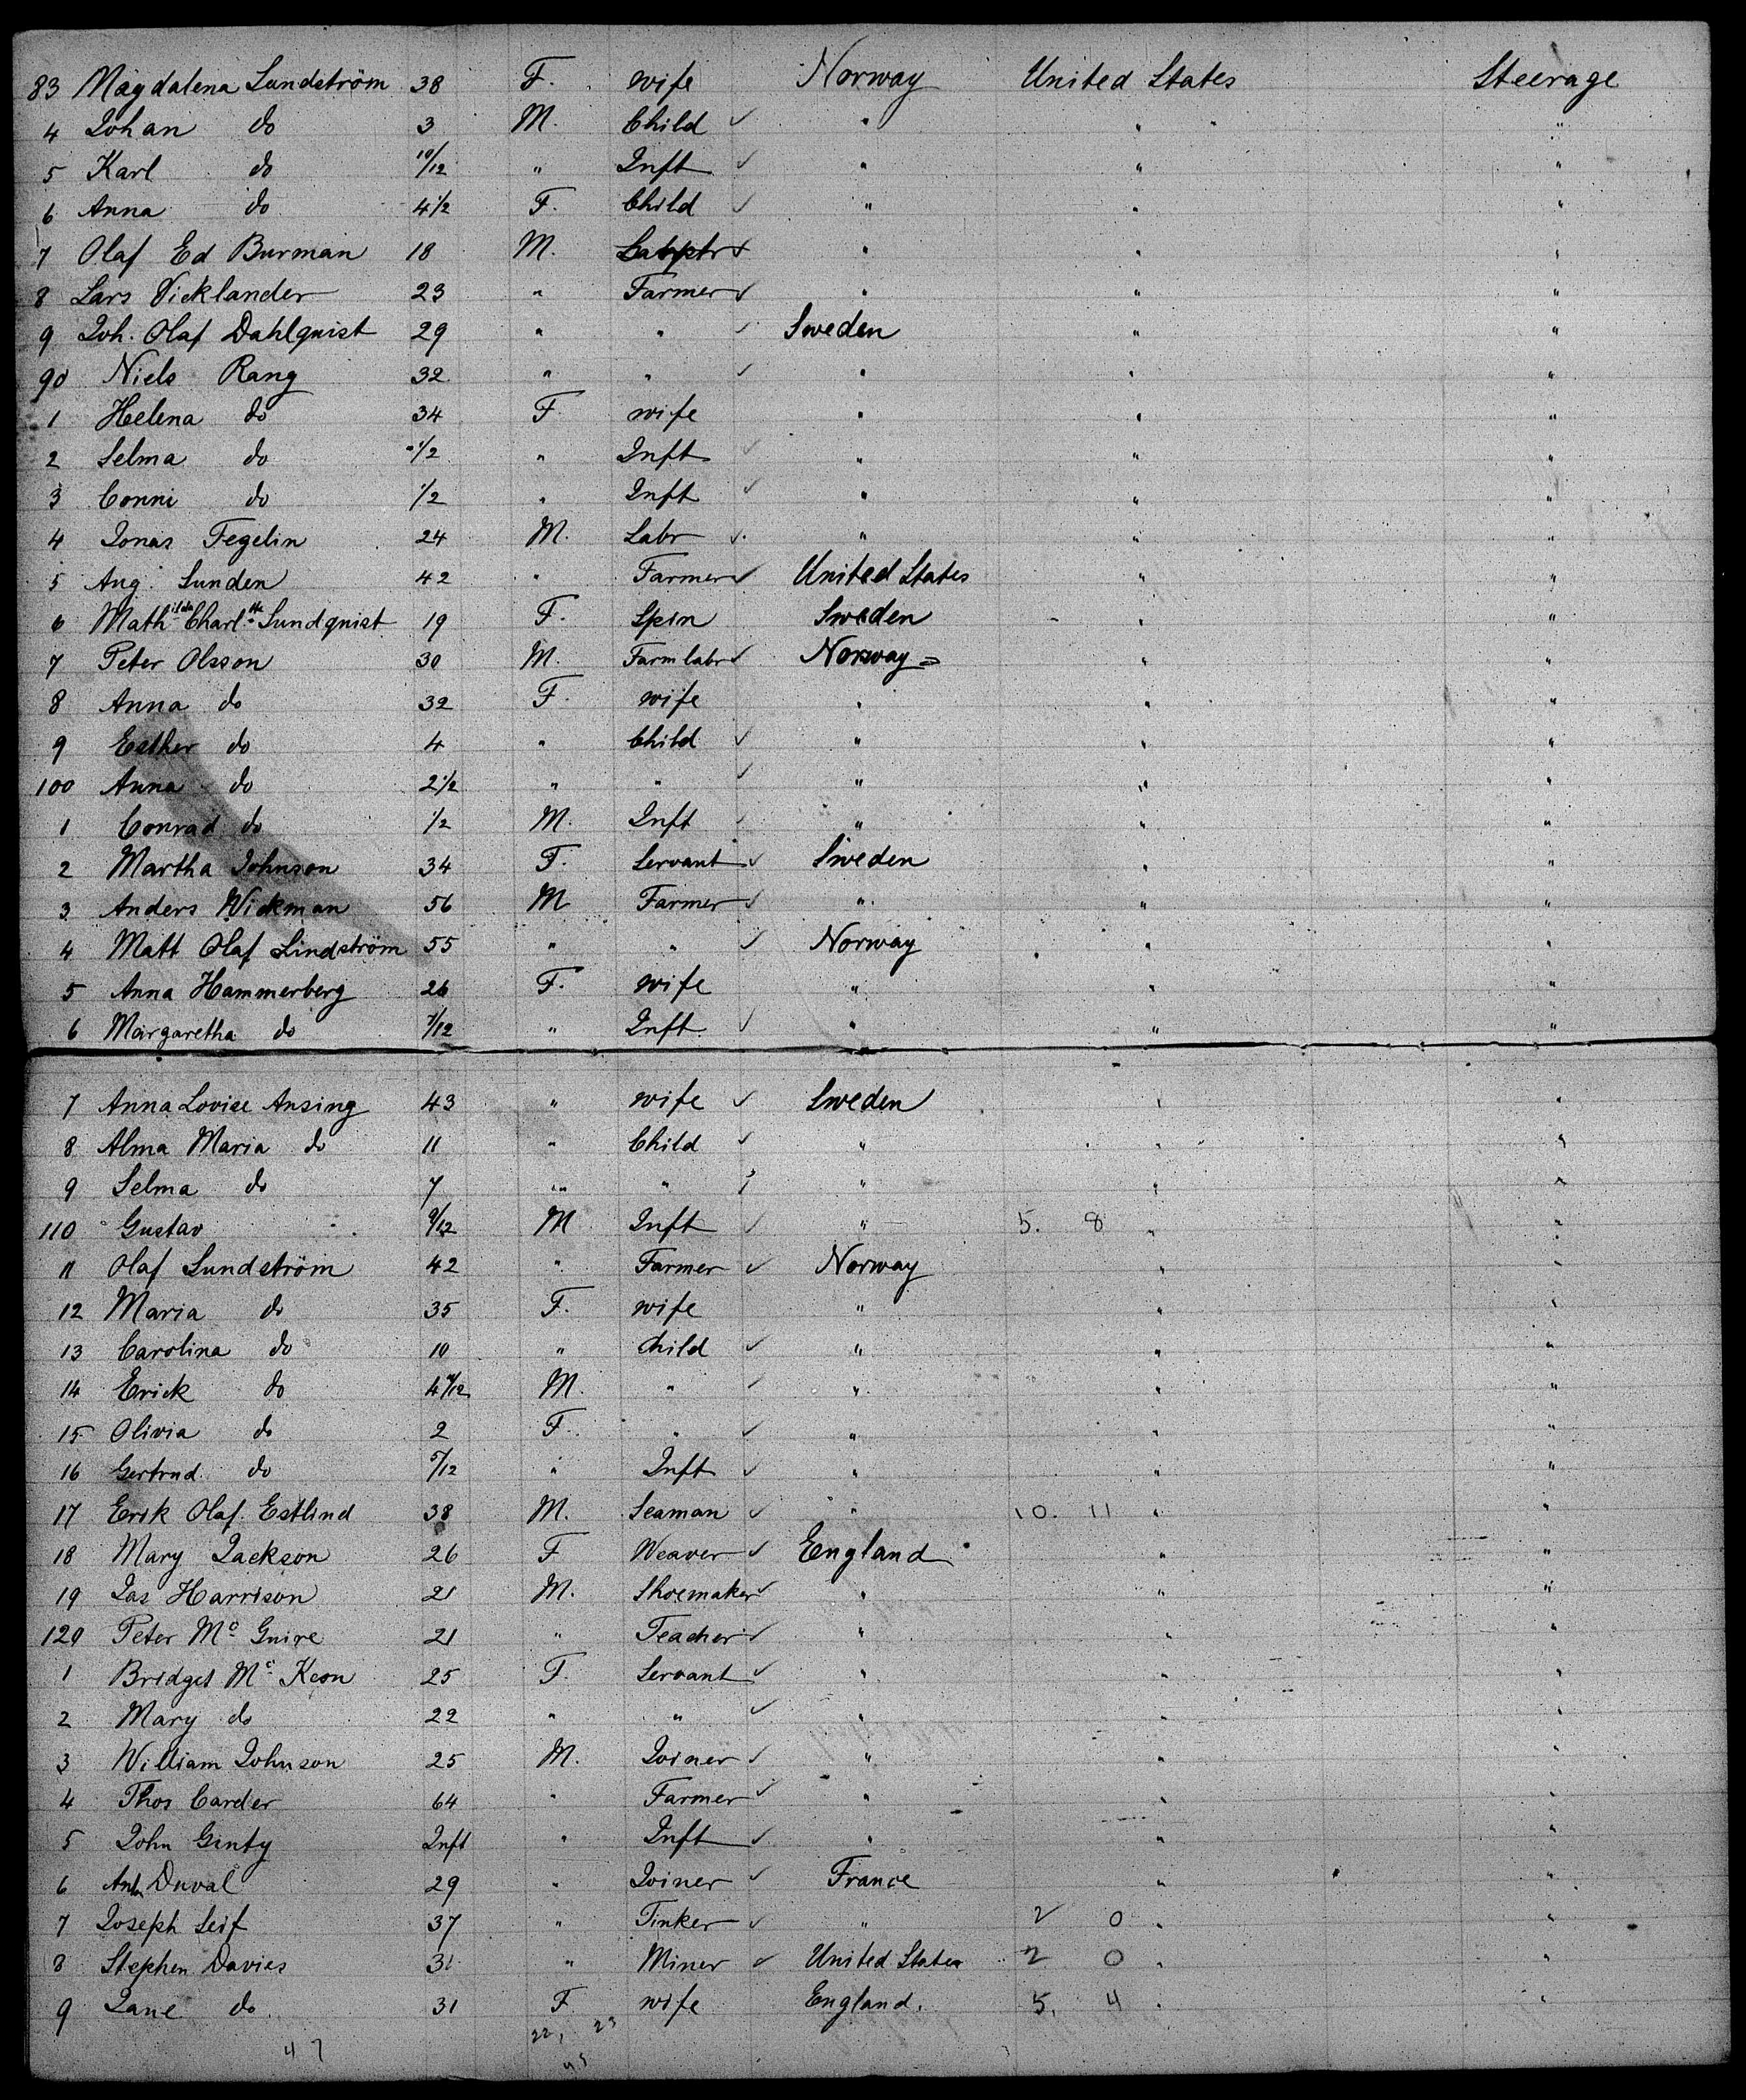 83 Magdalena Lundström 38 F. wife Norway United States Steerage
4 Johan do 3 M. Child ✓ " " "
5 Karl do 10/12 " Inft ✓ " " "
6 Anna do 4 1/2 F. Child ✓ " " "
7 Olaf Ed Burman 18 M. " " "
8 Lars Vicklander 23 " Farmer ✓ " " "
9 Joh. Olaf Dahlquist 29 " " ✓ Sweden " "
90 Niels Rang 32 " " ✓ " " "
1 Helena do 34 F wife " " "
2 Selma do 1/2 " Inft ✓ " " "
3 Conni do 1/2 " Inft ✓ " " "
4 Jonas Fegelin 24 M. Labr ✓ " " "
5 Aug. Lunden 42 " Farmer ✓ United States " "
6 Mathilda Charl.tte Lundquist 19 F. Spin Sweden " "
7 Peter Olsson 30 M. Farm labr ✓ Norway " "
8 Anna do 32 F. wife " " "
9 Esther do 4 " Child ✓ " " "
100 Anna do 2 1/2 " " ✓ " " "
1 Conrad do 1/2 M. Inft ✓ " " "
2 Martha Johnson 34 F. Servant ✓ Sweden " "
3 Anders Wickman 56 M Farmer ✓ " " "
4 Matt Olaf Lindström 55 " " ✓ Norway " "
5 Anna Hammerberg 26 F. wife " " "
6 Margaretha do " Inft ✓ " " "
7 Anna Lovise Ansing 43 " wife ✓ Sweden " "
8 Alma Maria do 11 " Child ✓ " " "
9 Selma do 7 " " ✓ " " "
110 Gustav 9/12 M Inft ✓ " 5. 8 " "
11 Olaf Lundström 42 " Farmer ✓ Norway " "
12 Maria do 35 F. wife " " "
13 Carolina do 10 " Child ✓ " " "
14 Erick do M. " ✓ " " "
15 Olivia do 2 F. " ✓ " " "
16 Gertrud do 5/12 " Inft ✓ " " "
17 Erik Olaf Estlind 38 M. Seaman ✓ " 10. 11 " "
18 Mary Jackson 26 F Weaver ✓ England " "
19 Jas Harrison 21 M. Shoemaker ✓ " " "
120 Peter Mc Guire 21 " Teacher ✓ " " "
1 Bridget Mc Keon 25 F. Servant ✓ " " "
2 Mary do 22 " " ✓ " " "
3 William Johnson 25 M. Joiner ✓ " " "
4 Thos Carder 64 " Farmer ✓ " " "
5 John Ginty Inft " Inft ✓ " " "
6 Duval 29 " Joiner ✓ France " "
7 Joseph Leif 37 " Tinker ✓ " 2 0 " "
8 Stephen Davies 31 " Miner ✓ United States 2 0 " "
9 Jane do 31 F wife England. 5. 4 " "
22, 23
47
45